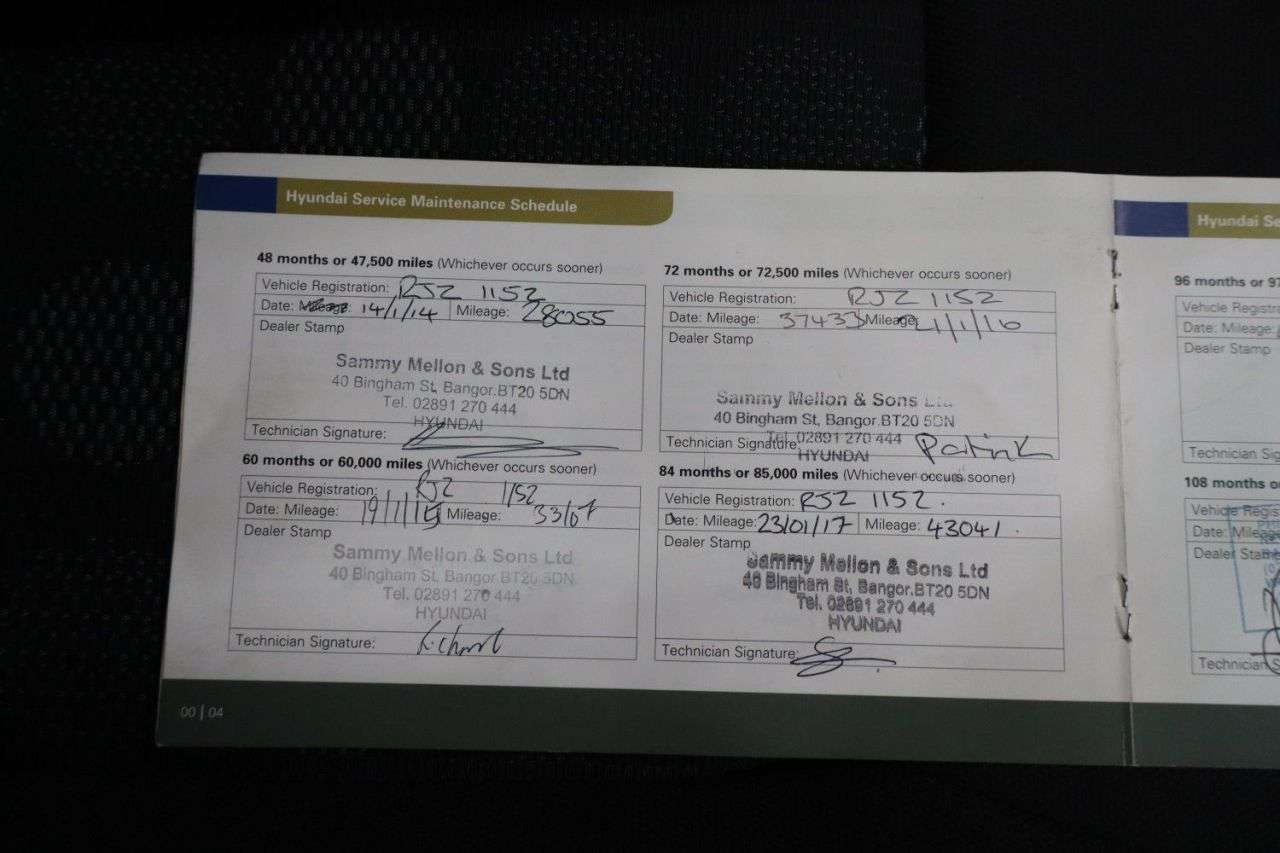 Hyundai Service Maintenance Schedule
48 months or 47,500 miles (Whichever occurs sooner)
Vehicle Registration: RJZ 1152
Date: 14/1/14 Mileage: 28055
Dealer Stamp
Sammy Mellon & Sons Ltd
40 Bingham St, Bangor.BT20 5DN
Tel. 02891 270 444
HYUNDAI
Technician Signature:
60 months or 60,000 miles (Whichever occurs sooner)
Vehicle Registration: RJZ 1152
Date: Mileage: 19/1/15 Mileage:
Dealer Stamp
Sammy Mellon & Sons Ltd
40 Bingham St, Bangor.BT20 5DN
Tel. 02891 270 444
HYUNDAI
Technician Signature:
72 months or 72,500 miles (Whichever occurs sooner)
Vehicle Registration: RJZ 1152
Date: Mileage: 37433 Mileage: /1/16
Dealer Stamp
Sammy Mellon & Sons Ltd
40 Bingham St, Bangor.BT20 5DN
Tel. 02891 270 444
HYUNDAI
Technician Signature: Patrick
84 months or 85,000 miles (Whichever occurs sooner)
Vehicle Registration: RJZ 1152.
Date: Mileage: 23/01/17 Mileage: 43041.
Dealer Stamp
Sammy Mellon & Sons Ltd
40 Bingham St, Bangor.BT20 5DN
Tel. 02891 270 444
HYUNDAI
Technician Signature:
00 | 04
Hyundai Se
96 months or 97
Vehicle Registr
Date: Mileage:
Dealer Stamp
Technician Sig
108 months o
Vehicle Regis
Date: Mileag
Dealer Stam
Technician S